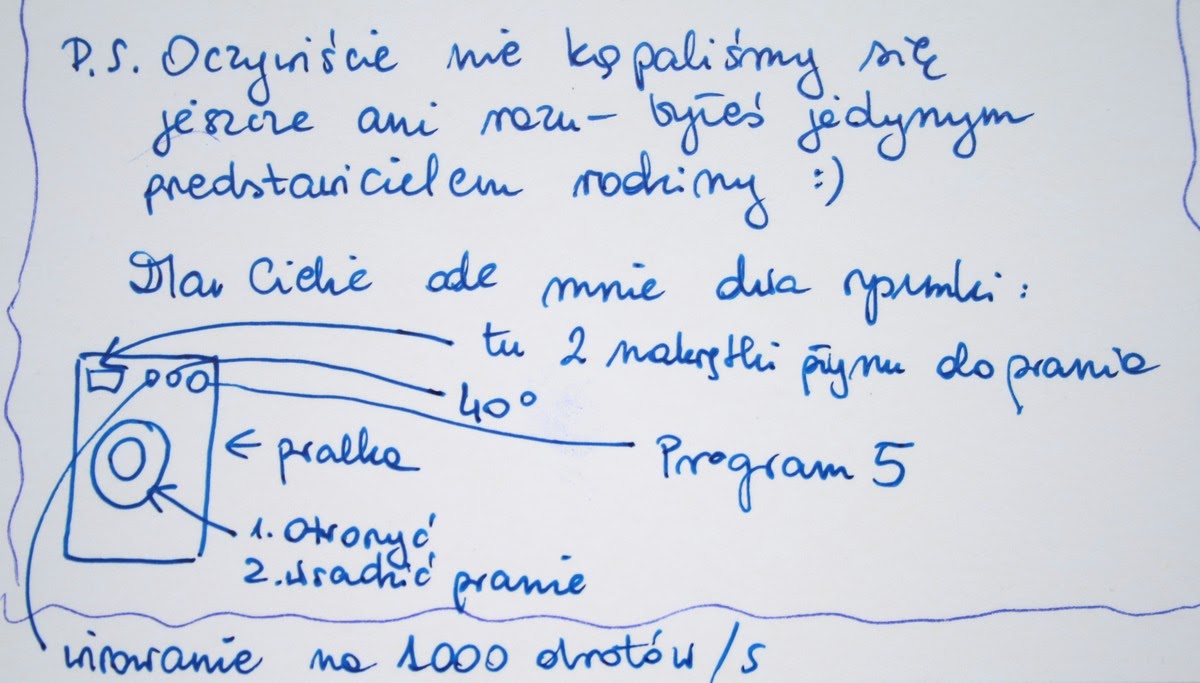 P.S. Oczywiście nie kąpaliśmy się
jeszcze ani razu – byłeś jedynym
predstawicielem rodziny :)
Dla Ciebie ode mnie dwa rysunki :
tu 2 nakrętki płynu do prania
40°
Program 5
← pralka
1. Otworzyć
2. wsadzić pranie
wirowanie na 1000 obrotów/s